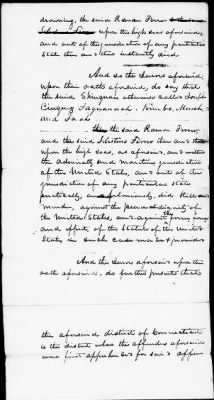 drowning, the said Ramon Ferrer
upon the high seas aforesaid,
and out of the jurisdiction of any particular
State then and there instantly died
And so the Jurors aforesaid,
upon their oath aforesaid, do say that
the said
and
the said Ramon Ferrer
and the said Celestino Ferrer then and there
upon the high seas, as aforesaid, and within
the Admiralty and maritime jurisdiction
of the United States, and out of the
jurisdiction of any particular State
piratically, and feloniously, did kill and
murder, against the peace and dignity of
the United States, and against the form, force
and effect of the Statute of the United
States in such case made and provided
And the Jurors aforesaid upon their
oath aforesaid, do further present that
the aforesaid district of Connecticut
is the district where the offenders aforesaid
were first apprehended for said offence